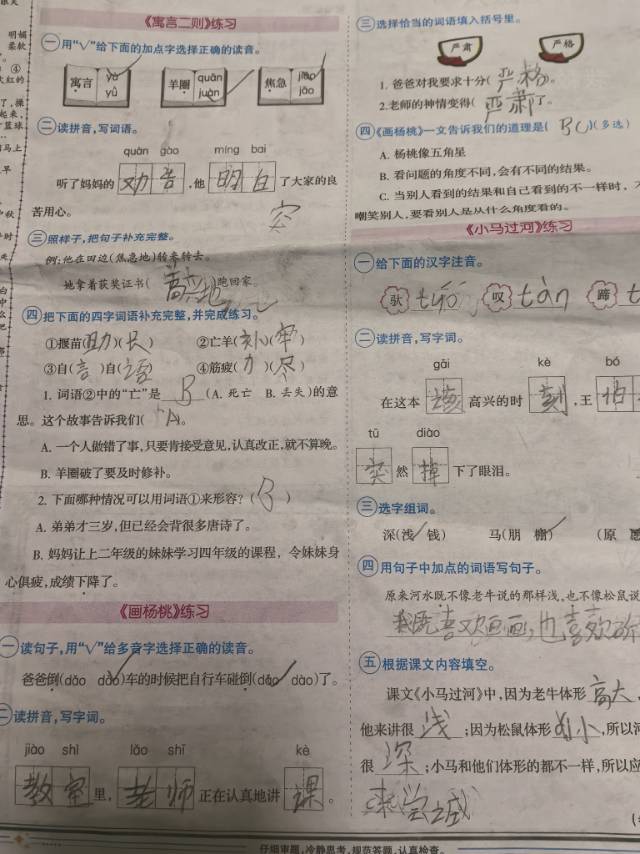 《寓言二则》练习
一 用“√”给下面的加点字选择正确的读音。
寓言 yù yǔ 羊圈 quān juàn 焦急 jiāo jāo
二 读拼音,写词语。
quàn gào míng bai
听了妈妈的 劝告 ,他 明白 了大家的良
苦用心。
三 照样子,把句子补充完整。
例:他在田边(焦急地)转来转去。
她拿着获奖证书( 高兴地 )跑回家。
四 把下面的四字词语补充完整,并完成练习。
①揠苗(助)(长) ②亡羊( )(牢)
③自(言)自(语) ④筋疲(力)(尽)
1. 词语②中的“亡”是 B (A. 死亡 B. 丢失)的意
思。这个故事告诉我们( A )。
A. 一个人做错了事,只要肯接受意见,认真改正,就不算晚。
B. 羊圈破了要及时修补。
2. 下面哪种情况可以用词语①来形容?( B )
A. 弟弟才三岁,但已经会背很多唐诗了。
B. 妈妈让上二年级的妹妹学习四年级的课程，令妹妹身
心俱疲,成绩下降了。
《画杨桃》练习
一 读句子,用“√”给多音字选择正确的读音。
爸爸倒(dǎo dào)车的时候把自行车碰倒(dǎo dào)了。
二 读拼音,写字词。
jiào shì lǎo shī kè
教室 里, 老师 正在认真地讲 课 。
三 选择恰当的词语填入括号里。
严肃 严格
1. 爸爸对我要求十分( 严格 )。
2.老师的神情变得( 严肃 )了。
四 《画杨桃》一文告诉我们的道理是( BC )(多选)
A. 杨桃像五角星
B. 看问题的角度不同,会有不同的结果。
C. 当别人看到的结果和自己看到的不一样时，
嘲笑别人,要看别人是从什么角度看的。
《小马过河》练习
一 给下面的汉字注音。
驮 tuó 叹 tàn 蹄 t
二 读拼音,写字词。
gāi kè bó
在这本 该 高兴的时 刻 ,王 伯
tū diào
突 然 掉 下了眼泪。
三 选字组词。
深(浅 钱) 马(朋 棚) (原
四 用句子中加点的词语写句子。
原来河水既不像老牛说的那样浅,也不像松鼠说
我既喜欢画画,也喜欢
五 根据课文内容填空。
课文《小马过河》中,因为老牛体形 高大
他来讲很 浅 ;因为松鼠体形 小 ,所以河
很 深 ;小马和他们体形的都不一样,所以应
仔细审题,冷静思考,规范答题,认真检查。